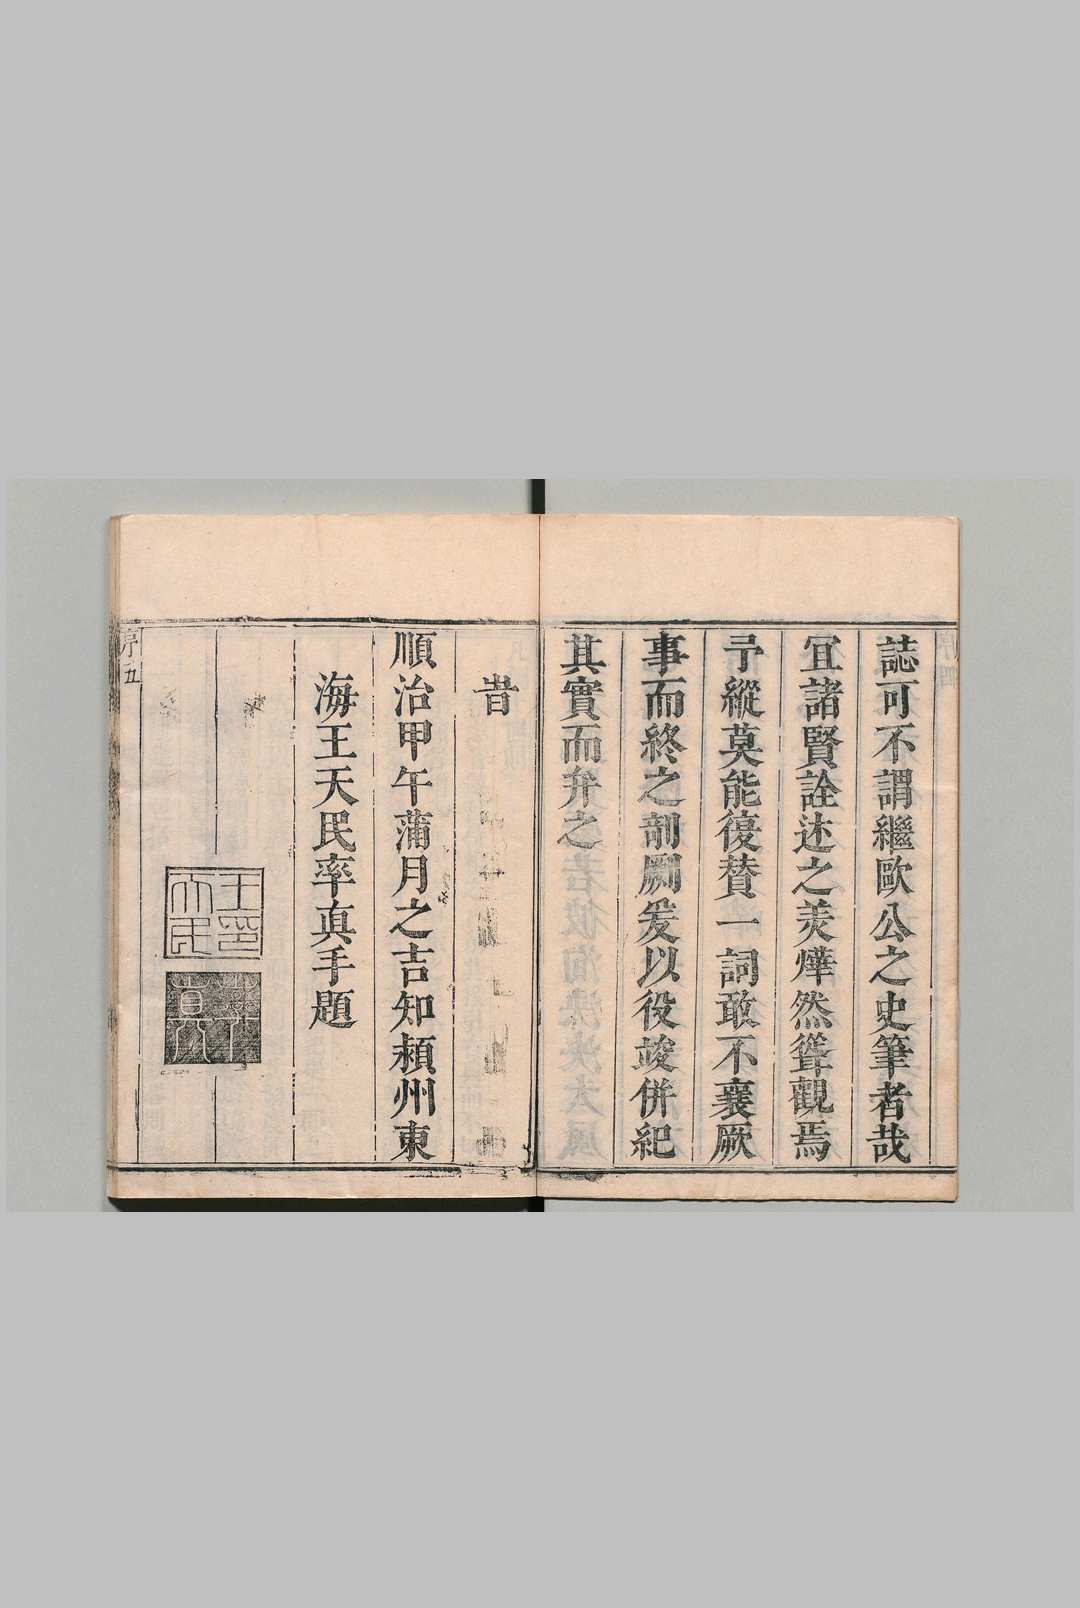 誌可不謂繼歐公之史筆者哉
宜諸賢詮述之美燁然聳觀焉
予縱莫能復贊一詞敢不襄厥
事而終之剞劂爰以役竣併紀
其實而弁之
昔
順治甲午蒲月之吉知潁州東
海王天民率真手題
王印天民
率真
序五